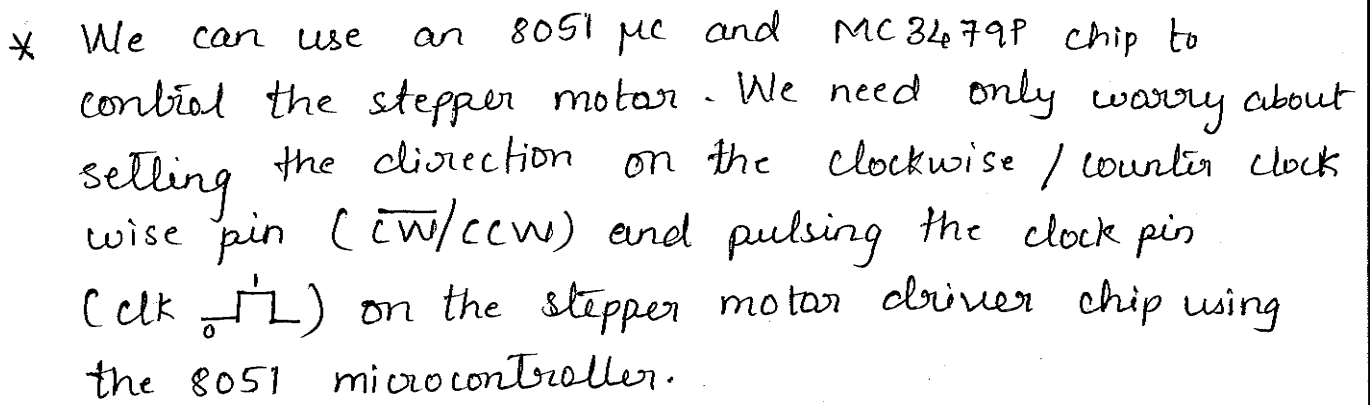 * We can use an 8051 μc and MC3479P chip to
control the stepper motor. We need only worry about
setting the direction on the clockwise / counter clock
wise pin (C̅W̅/CCW) and pulsing the clock pin
(clk 0 1) on the stepper motor driver chip using
the 8051 microcontroller.